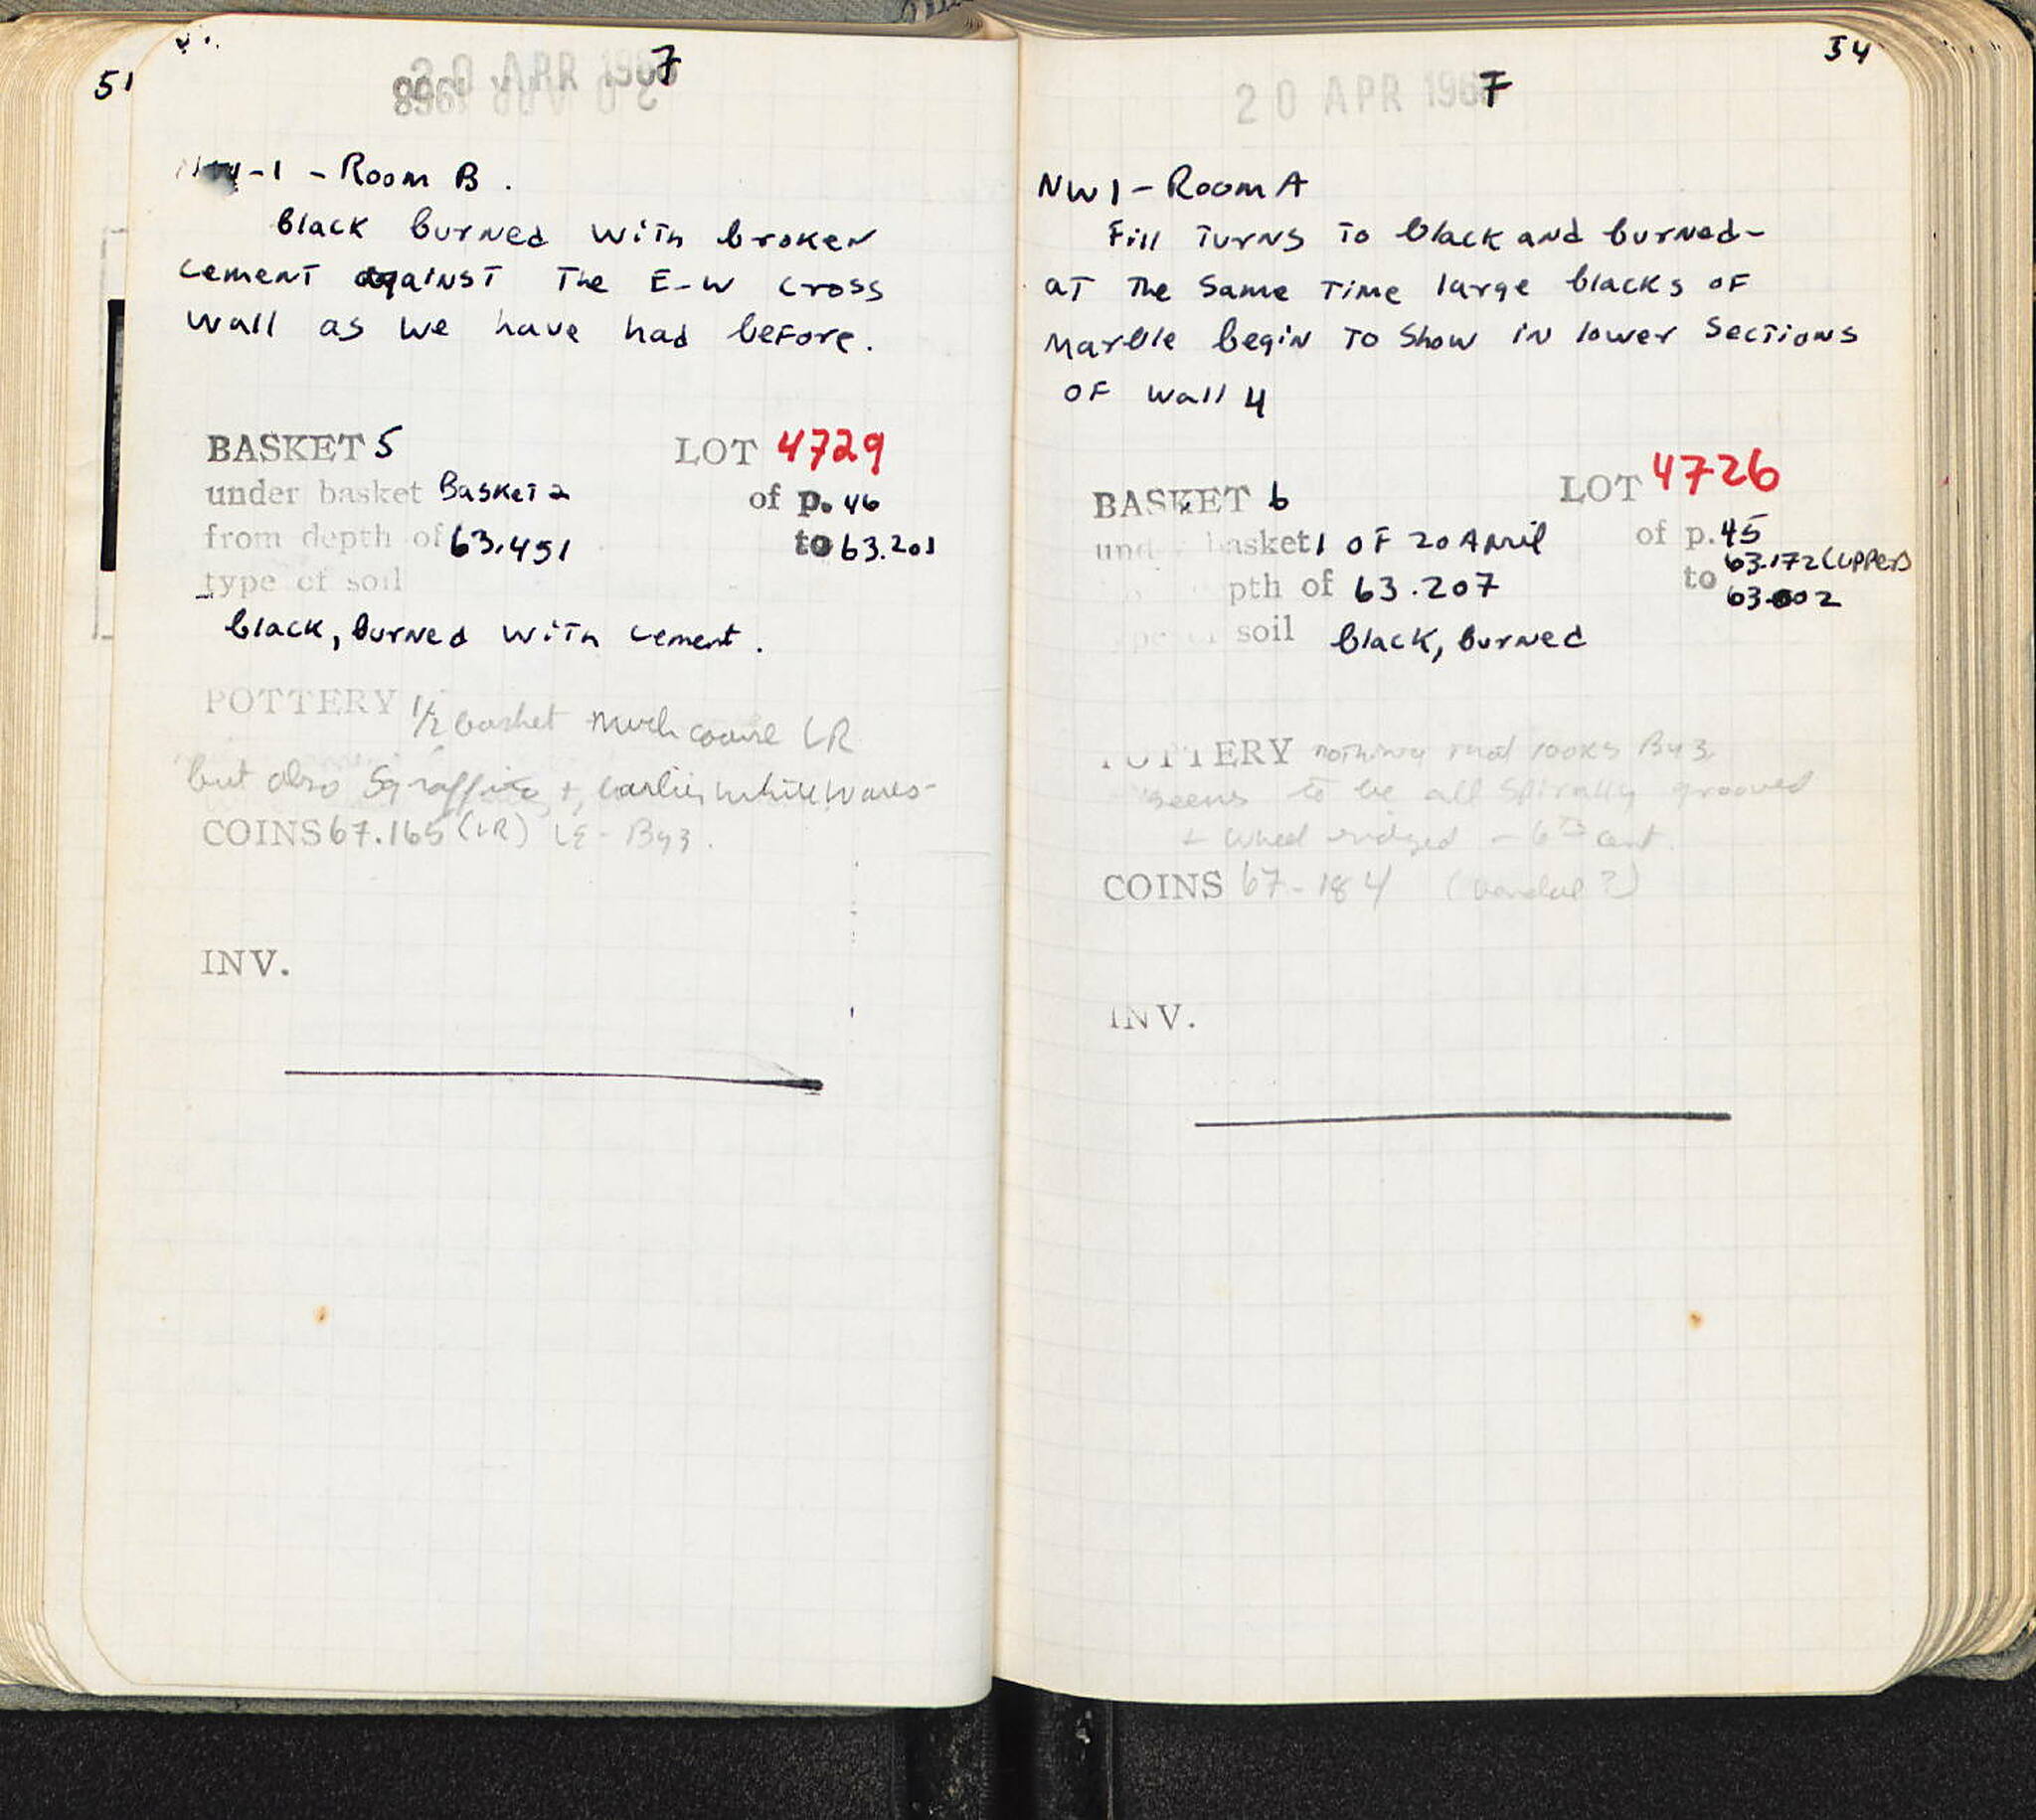 51
20 APR 1967
NW-1 - Room B.
black burned with broken
cement against the E-W cross
wall as we have had before.
BASKET 5 LOT 4729
under basket Basket 2 of p. 46
from depth of 63.451 to 63.201
type of soil
black, burned with cement.
POTTERY 1/2 basket much coarse LR
but also Sgraffito + earlier white wares-
COINS 67.165 (LR) LE - Byz.
INV.
54
20 APR 1967
NW1 - Room A
Fill turns to black and burned-
at the same time large blacks of
marble begin to show in lower sections
of wall 4
BASKET 6 LOT 4726
und basket 1 of 20 April of p. 45
pth of 63.207 to 63.172 (upper)
63.002
soil black, burned
POTTERY nothing that looks Byz.
seems to be all spirally grooved
+ wheel ridged - 6th cent.
COINS 67-184 (Vandal?)
INV.